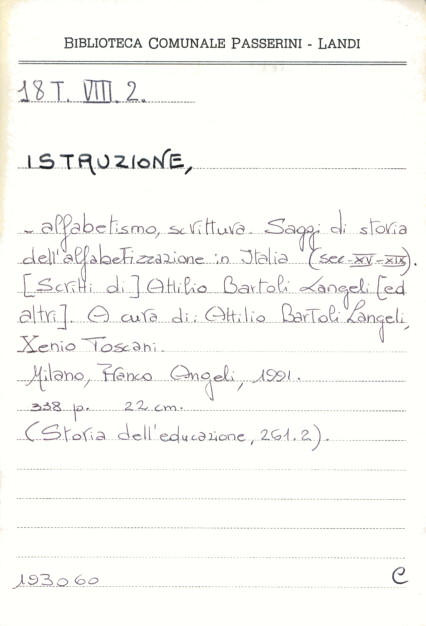 BIBLIOTECA COMUNALE PASSERINI - LANDI
18 T. VIII. 2.
ISTRUZIONE,
- alfabetismo, scrittura. Saggi di storia
dell'alfabetizzazione in Italia (sec-XV-XIX).
[Scritti di] Attilio Bartoli Langeli [ed
altri]. A cura di: Attilio Bartoli Langeli,
Xenio Toscani.
Milano, Franco Angeli, 1991.
338 p. 22 cm.
(Storia dell'educazione, 261.2).
193060 C